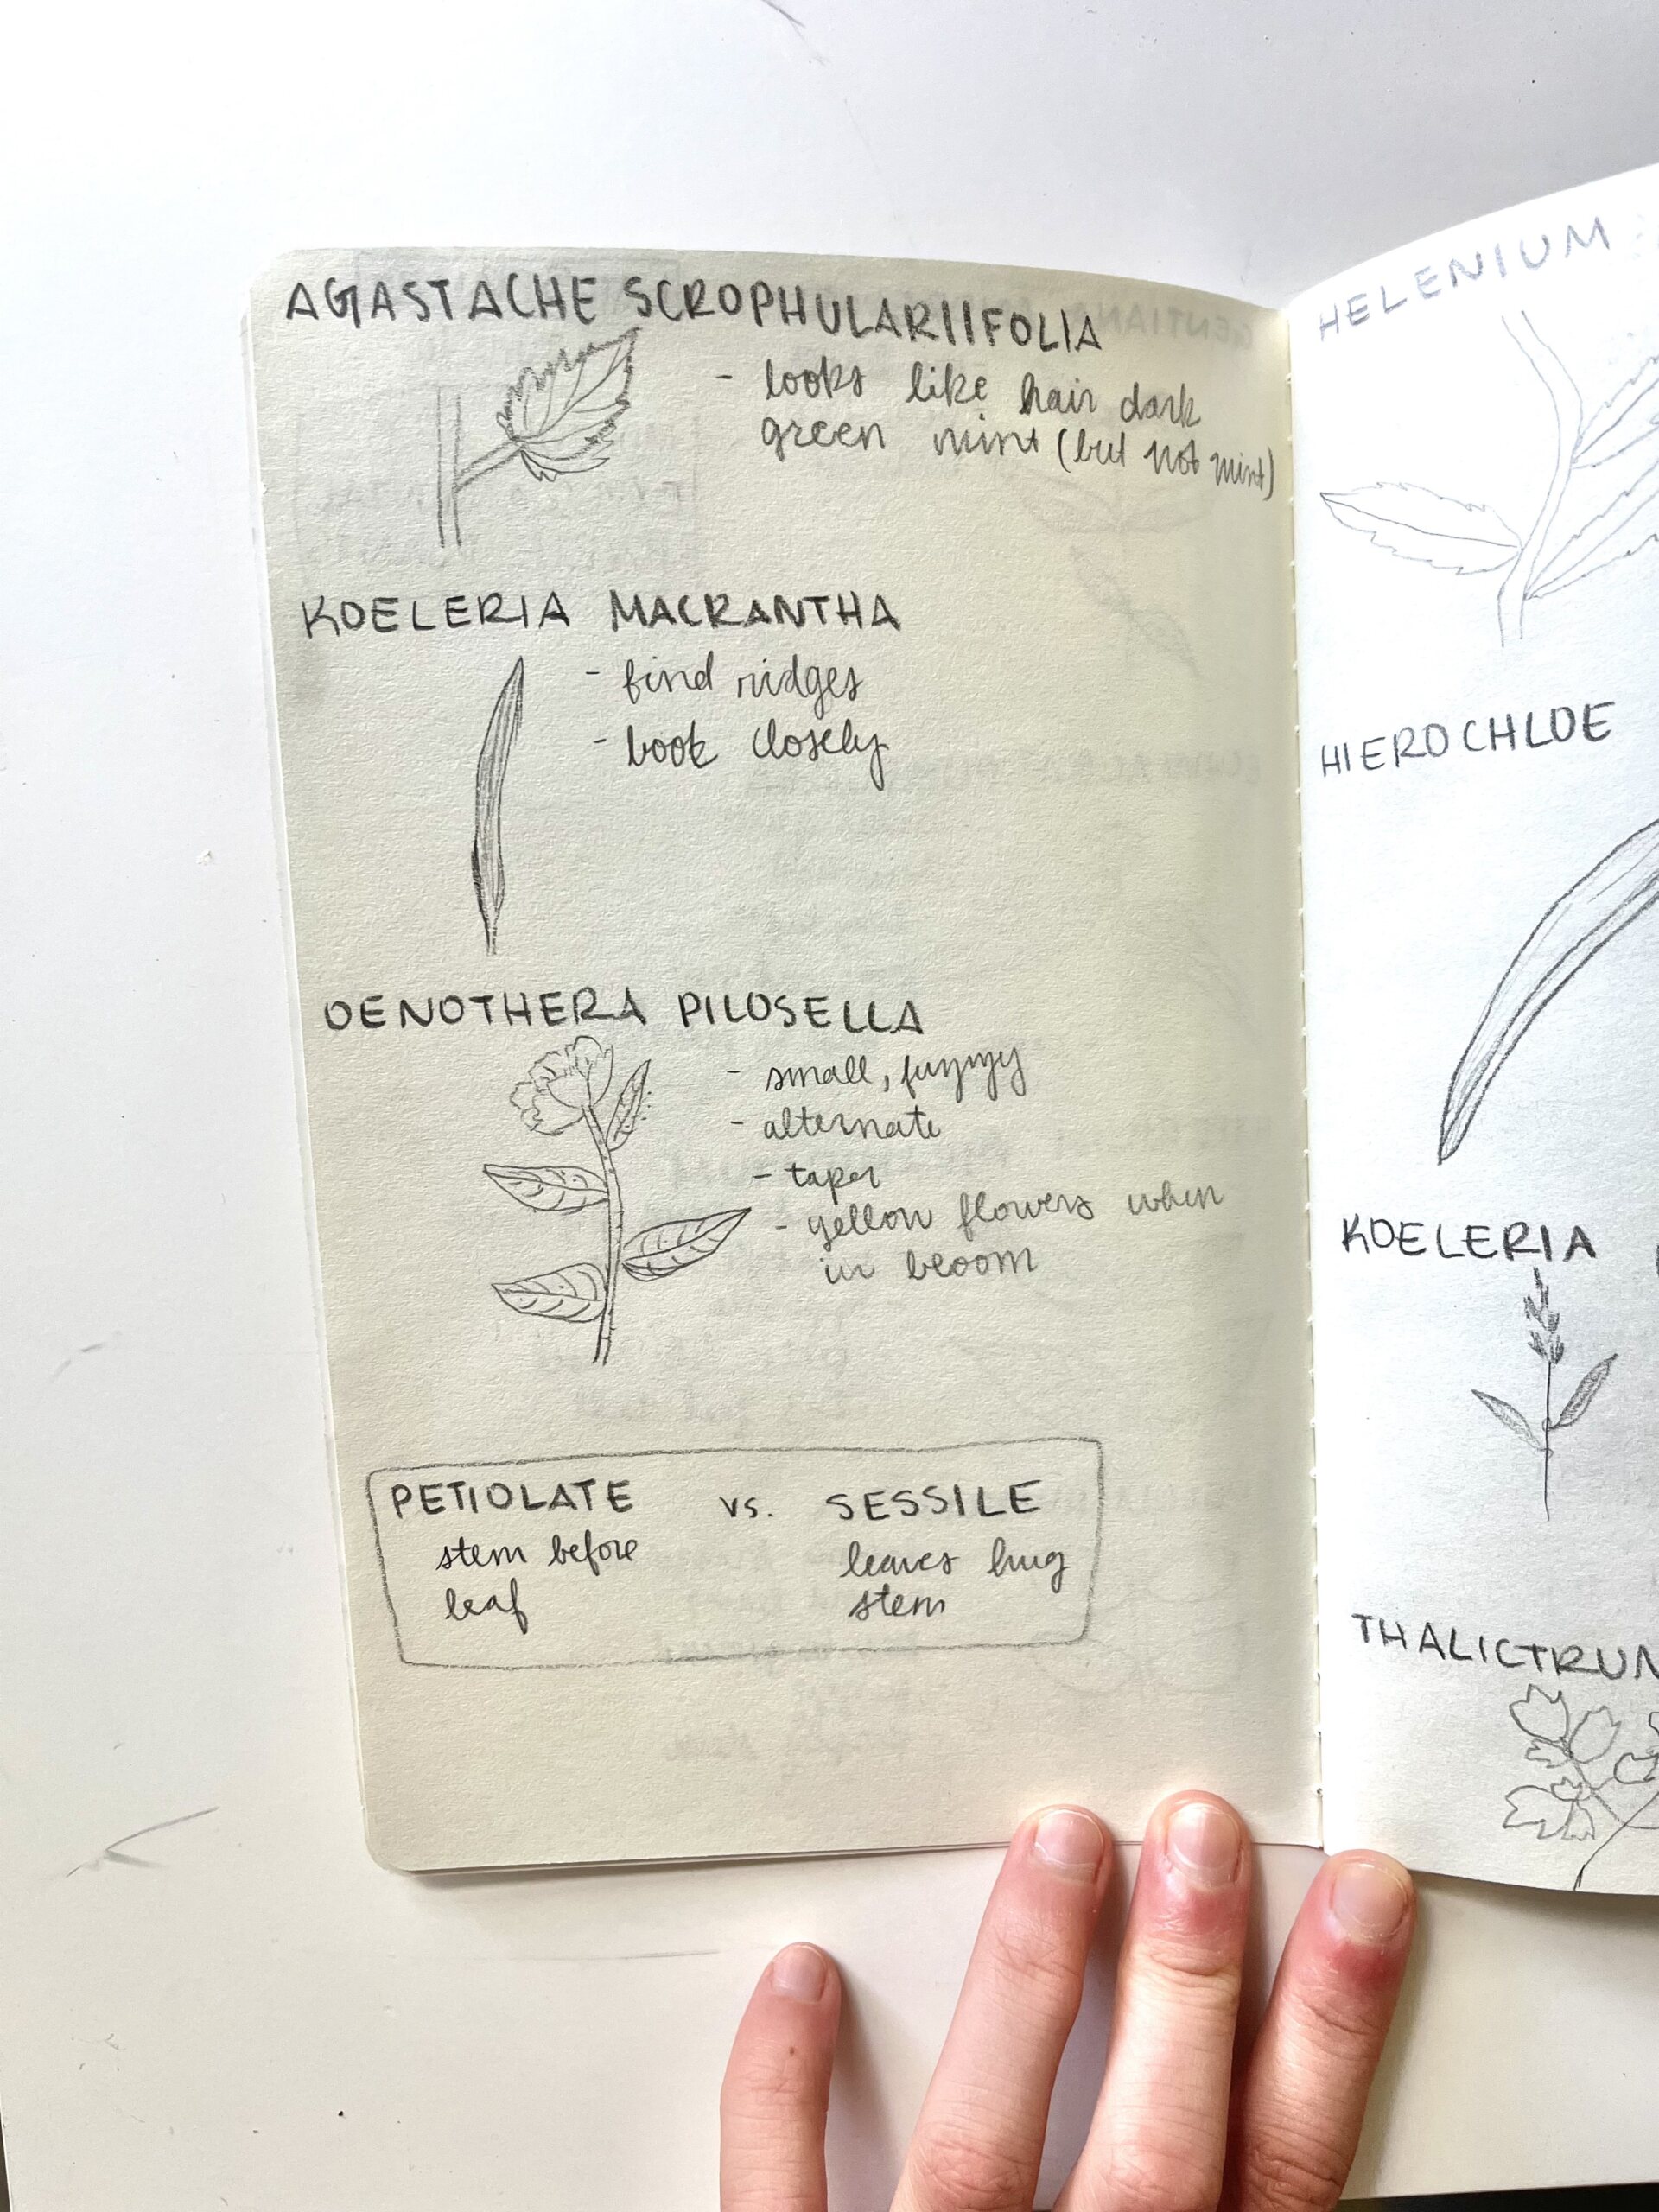 AGASTACHE SCROPHULARIIFOLIA
- looks like hair dark
green mint (but not mint)
KOELERIA MACRANTHA
- find ridges
- look closely
OENOTHERA PILOSELLA
- small, fuzzy
- alternate
- taper
- yellow flowers when
in bloom
PETIOLATE vs. SESSILE
stem before leaves hug
leaf stem
HELENIUM
HIEROCHLOE
KOELERIA
THALICTRUM